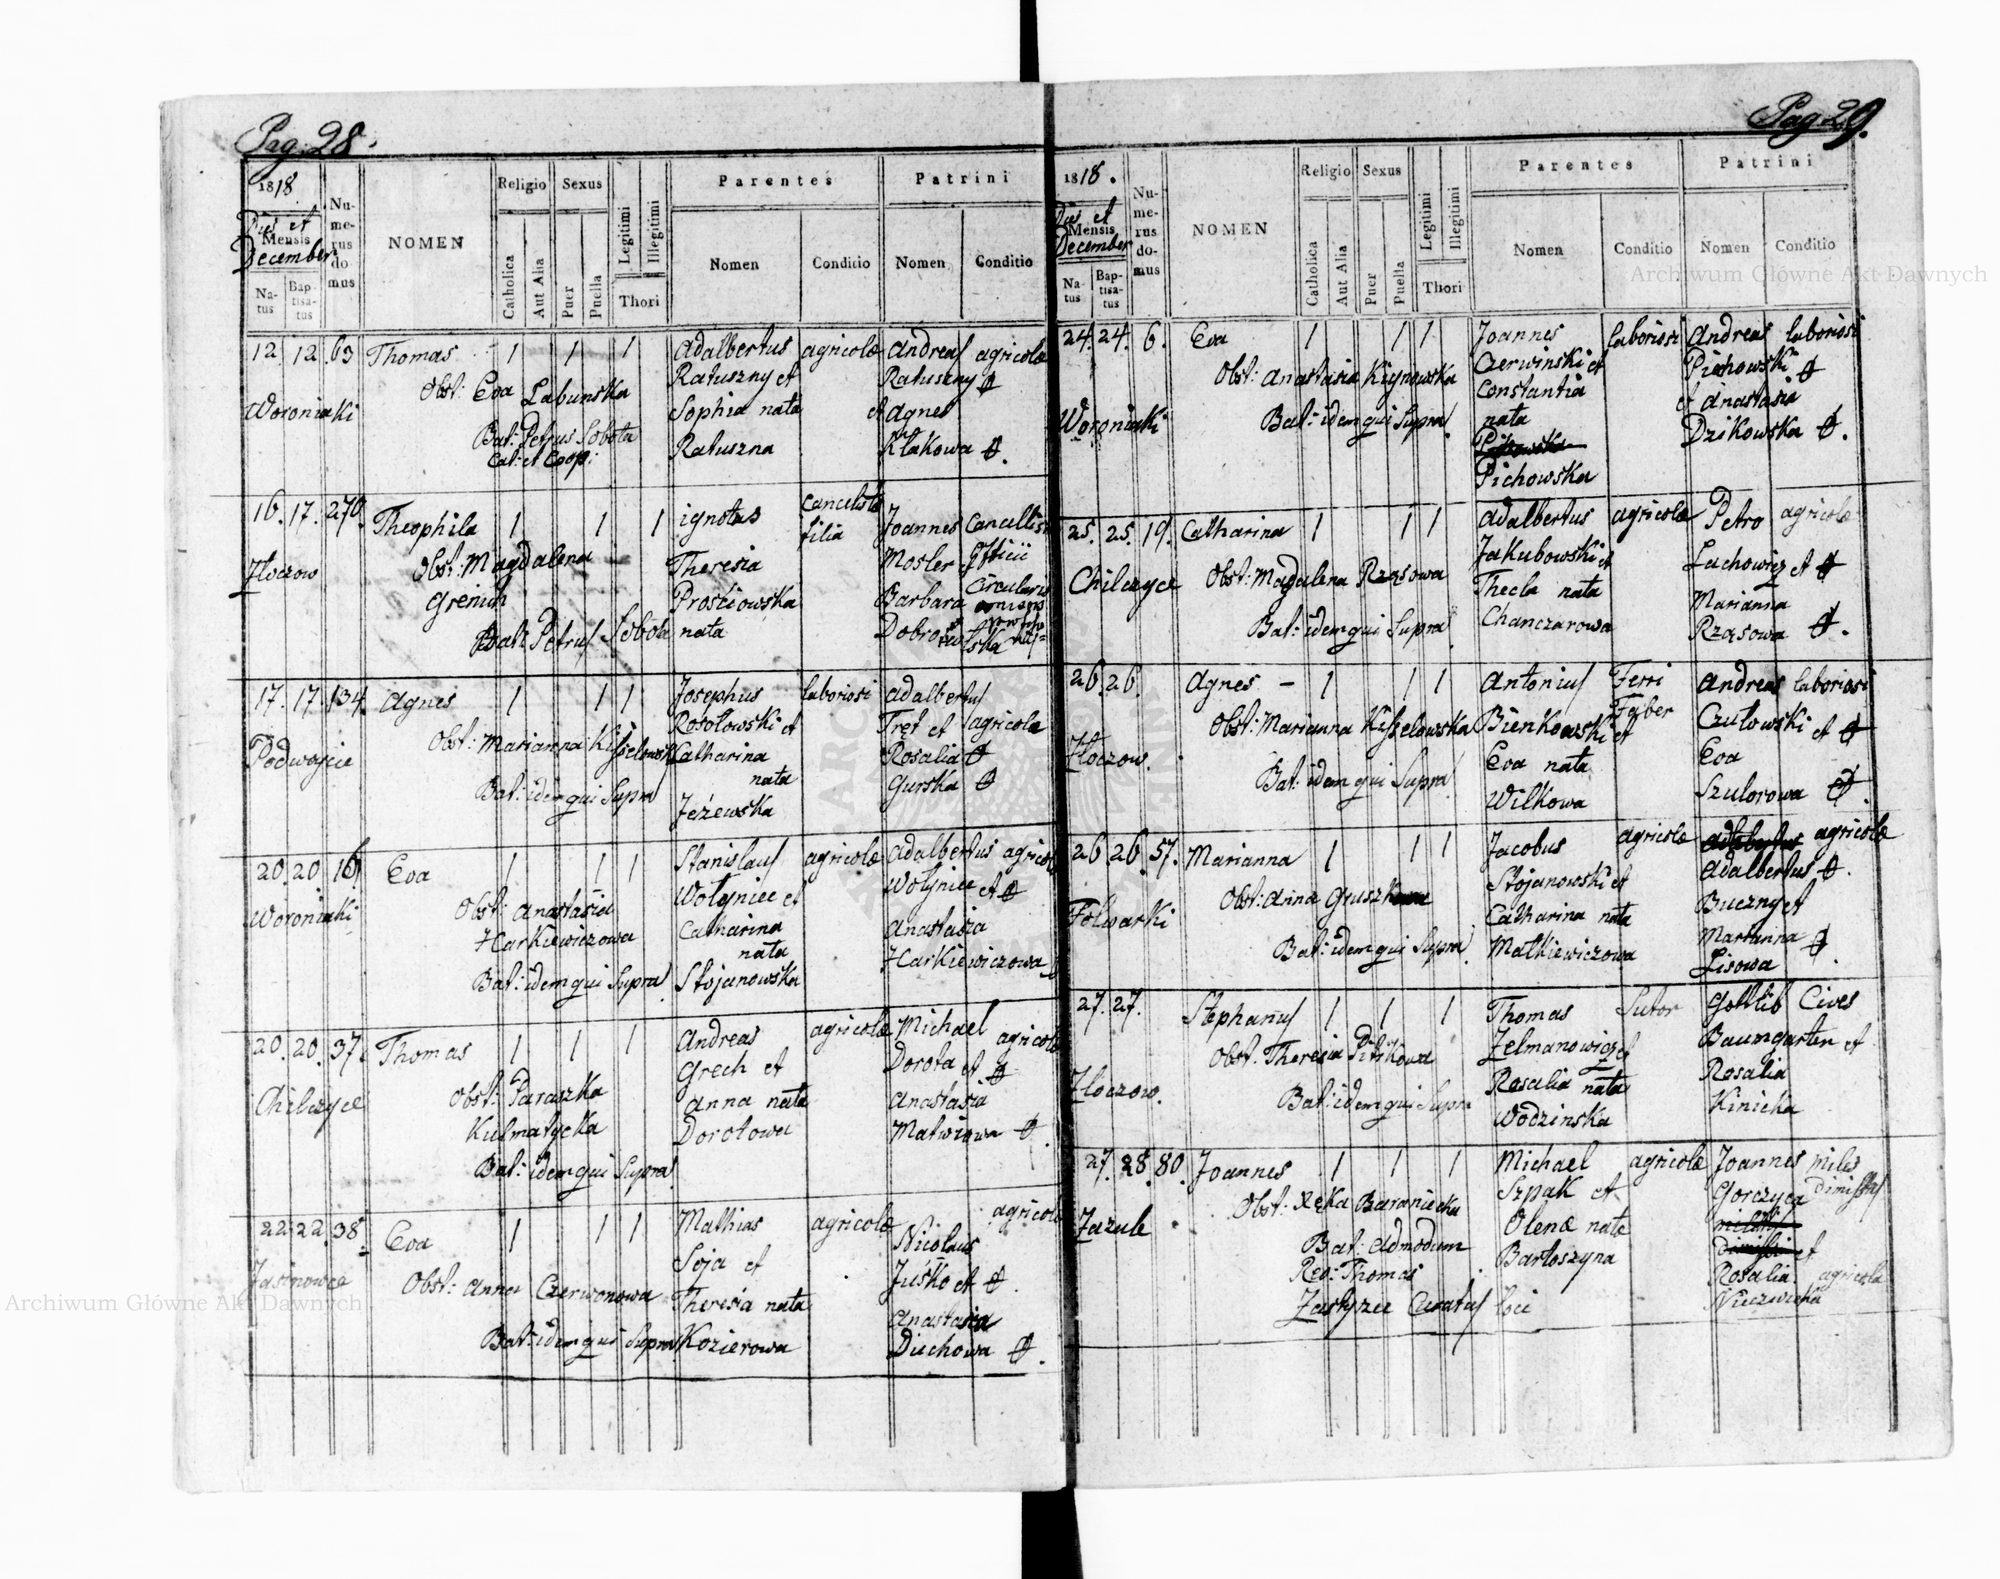 Pag: 28.
1818.
Dies et
Mensis
December
Na-
tus
Bap-
tisa-
tus
Nu-
me-
rus
do
mus
NOMEN
Religio
Catholica
Aut Alia
Sexus
Puer
Puella
Legitimi
Illegitimi
Thori
Parentes
Nomen
Conditio
Patrini
Nomen
Conditio
12. 12. 63 Thomas 1 1 1 Adalbertus agricolæ Andreas agricolæ
Ratuszny et Ratuszny
Obst: Eva Labunska
Woroniaki Sophia nata et Agnes
Bat: Petrus Sobota
Cat: et Coop: Ratuszna Kłakowa
16. 17. 270. Theophila 1 1 1 ignotus filia Joannes
Obst: Magdalena Theresia Mosler Officii
Złoczow Grenich Prościowska Barbara Circularis
Bat: Petrus Sobota nata
17. 17. 134. Agnes 1 1 1 Josephus laboriosi Adalbertus
Obst: Marianna Rosołowski et Tręt et agricola
Podwojcie Catharina Rosalia
Bat: idem qui Supra nata Gurska
Jeżewska
20. 20. 16. Eva 1 1 1 Stanislaus agricolæ Adalbertus
Woroniaki Obst: Anastasia Wołyniec et Wołyniec et
Harkiewiczowa Catharina Anastasia
nata Harkiewiczowa
Bat: idem qui Supra Stojanowska
20. 20. 37. Thomas 1 1 1 Andreas agricolæ Michael
Chilczyce Obst: Paraszka Grech et Dorota et
Kulmatycka Anna nata Anastasia
Dorotowa Matwiowa
Bat: idem qui Supra
22. 22. 38. Eva 1 1 1 Mathias agricolæ Nicolaus
Soja et Juśko et
Jasinowce Obst: Anna Czerwonowa Theresia nata Anastasia
Bat: idem qui Supra Kozierowa Diuchowa
Pag 29.
1818.
Dies et
Mensis
December
Na-
tus
Bap-
tisa-
tus
Nu-
me-
rus
do-
mus
NOMEN
Religio
Catholica
Aut Alia
Sexus
Puer
Puella
Legitimi
Illegitimi
Thori
Parentes
Nomen
Conditio
Patrini
Nomen
Conditio
24. 24. 6. Eva 1 1 1 Joannes laboriosi Andreas laboriosi
Obst: Anastasia Kiynowska Czerwinski et Pichowski
Constantia et Anastasia
Woroniaki Bat: idem qui Supra nata Dzikowska
Pichowska
25. 25. 19. Catharina 1 1 1 Adalbertus agricolæ Petro agricolæ
Jakubowski et Lachowicz et
Chilczyce Obst: Magdalena Rząsowa Thecla nata Marianna
Bat: idem qui Supra Chanczarowa Rząsowa
26. 26. Agnes - 1 1 1 Antonius Ferri Andreas laboriosi
Faber
Obst: Marianna Kisselowska Bienkowski et Czułowski et
Złoczow. Eva nata Eva
Bat: idem qui Supra Wilkowa Szulorowa
26 26. 57. Marianna 1 1 1 Jacobus agricolæ Adalbertus agricolæ
Stojanowski et Adalbertus
Obst: Anna Catharina nata Buczny et
Folwarki Małkiewiczowa Marianna
Bat: idem qui Supra Lisowa
27. 27. Stephanus 1 1 1 Thomas Sutor Gottlib Cives
Obst. Theresia Zelmanowicz et Baumgarten et
Złoczow. Rosalia nata Rosalia
Bat: idem qui Supra Wodzinska Kinicka
27. 28. 80. Joannes 1 1 1 Michael agricolæ Joannes miles
Obst: Baraniecka Szpak et Gorczyca
Zazule Olena nata
Bat: Admodum Bartoszyna et
Rev: Thomas Rosalia agricola
Zastyrec Curatus loci
Archiwum Główne Akt Dawnych
Archiwum Główne Akt Dawnych